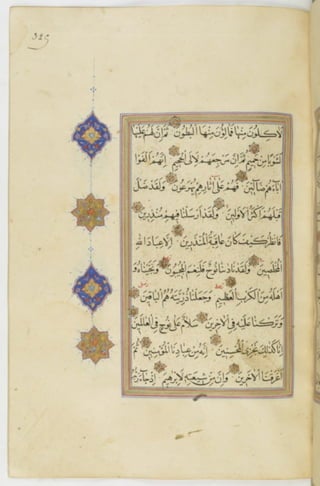 لَاٰكِلُونَ مِنْهَا فَمَالِئُونَ مِنْهَا الْبُطُونَ ثُمَّ اِنَّ لَهُمْ عَلَيْهَا
لَشَوْبًا مِنْ حَمِيمٍ ثُمَّ اِنَّ مَرْجِعَهُمْ لَاِلَى الْجَحِيمِ اِنَّهُمْ اَلْفَوْا
اٰبَاءَهُمْ ضَالِّينَ فَهُمْ عَلٰى اٰثَارِهِمْ يُهْرَعُونَ وَلَقَدْ ضَلَّ
قَبْلَهُمْ اَكْثَرُ الْاَوَّلِينَ وَلَقَدْ اَرْسَلْنَا فِيهِمْ مُنْذِرِينَ
فَانْظُرْ كَيْفَ كَانَ عَاقِبَةُ الْمُنْذَرِينَ اِلَّا عِبَادَ اللهِ
الْمُخْلَصِينَ وَلَقَدْ نَادٰنَا نُوحٌ فَلَنِعْمَ الْمُجِيبُونَ وَنَجَّيْنَاهُ وَ
اَهْلَهُ مِنَ الْكَرْبِ الْعَظِيمِ وَجَعَلْنَا ذُرِّيَّتَهُ هُمُ الْبَاقِينَ
وَتَرَكْنَا عَلَيْهِ فِي الْاٰخِرِينَ سَلَامٌ عَلٰى نُوحٍ فِي الْعَالَمِينَ
اِنَّا كَذٰلِكَ نَجْزِي الْمُحْسِنِينَ اِنَّهُ مِنْ عِبَادِنَا الْمُؤْمِنِينَ ثُمَّ
اَغْرَقْنَا الْاٰخَرِينَ وَاِنَّ مِنْ شِيعَتِهِ لَاِبْرٰهِيمَ اِذْ جَاءَ رَبَّهُ